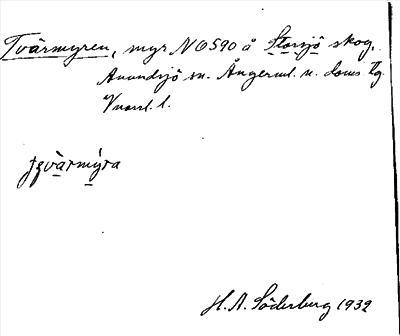 Tvärmyren, myr N O 590 å Storsjö skog,
Anundsjö sn. Ångerml. n. doms tg.
Vnorrl. l.
tqvärmýra
H. A. Söderberg 1932